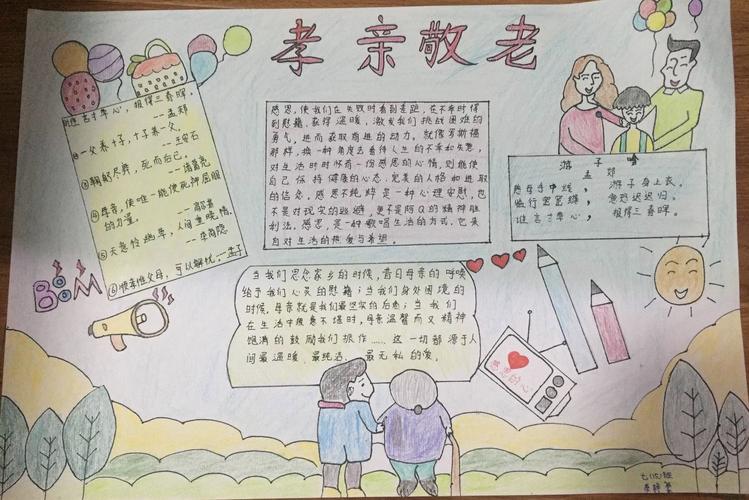 孝亲敬老
谁言寸草心，报得三春晖。
——孟郊
②一父养十子，十子养一父。
——王安石
③鞠躬尽瘁，死而后已。
——诸葛亮
④母亲，使唯一能使死神屈服
的力量。
——高尔基
⑤天意怜幽草，人间重晚情。
——李商隐
⑥惟孝惟父母，可以解忧。—孟子
BOOM
感恩，使我们在失败时看到差距，在不幸时得
到慰藉、获得温暖，激发我们挑战困难的
勇气，进而获取前进的动力。就像罗斯福
那样，换一种角度去看待人生的不幸和失意，
对生活时时怀有一份感恩的心情，则能使
自己保持健康的心态、完美的人格和进取
的信念。感恩不纯粹是一种心理安慰，也
不是对现实的逃避，更不是阿Q的精神胜
利法。感恩，是一种歌唱生活的方式，它来
自对生活的热爱与希望。
游子吟
孟郊
慈母手中线，游子身上衣。
临行密密缝，意恐迟迟归。
谁言寸草心，报得三春晖。
当我们思念家乡的时候，昔日母亲的呼唤
给予我们心灵的慰藉；当我们身处困境的
时候，母亲就是我们最坚实的后盾；当我们
在生活中疲惫不堪时，母亲温馨而又精神
饱满的鼓励我们振作……这一切都源于人
间最温暖、最纯洁、最无私的爱。
感恩的心
七(15)班